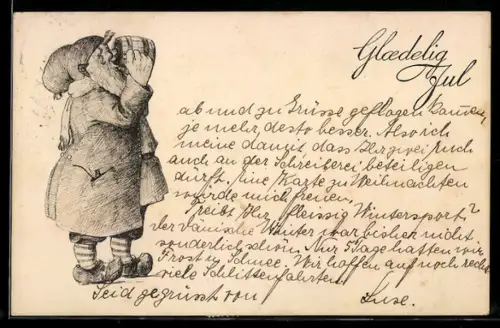 Glædelig
Jul
ab und zu Grüsse geflogen kämen,
je mehr, desto besser. Also ich
meine damit dass Ihr zwei Euch
auch an der Schreiberei beteiligen
dürft. Eine Karte zu Weihnachten
würde mich freuen.
Treibt Ihr fleissig Wintersport?
Der dänische Winter war bisher nicht
sonderlich schön. Nur 5 Tage hatten wir
Frost u. Schnee. Wir hoffen auf noch recht
viele Schlittenfahrten!
Seid gegrüsst von